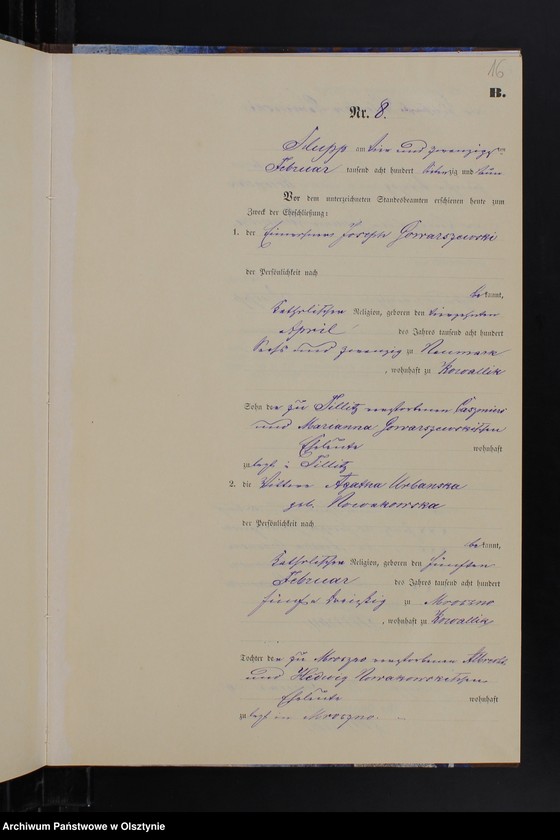 16
B.
Nr. 8.
am vier und zwanzigsten
Februar tausend acht hundert siebenzig und neun
Vor dem unterzeichneten Standesbeamten erschienen heute zum
Zweck der Eheschließung:
1. der Einwohner Joseph Gowarszewski
der Persönlichkeit nach
bekannt,
katholischer Religion, geboren den vierzehnten
April des Jahres tausend acht hundert
sechs und zwanzig zu Neumark
, wohnhaft zu Kowallik
Sohn der zu Tillitz verstorbenen Casimir
und Marianna Gowarszewskischen
Eheleute wohnhaft
zuletzt in Tillitz
2. die Wittwe Agatha Urbanska
geb. Nowakowska
der Persönlichkeit nach
bekannt,
katholischer Religion, geboren den fünften
Februar des Jahres tausend acht hundert
dreißig zu Mroszno
, wohnhaft zu Kowallik
Tochter der zu Mroszno verstorbenen Albrecht
und Hedwig Nowakowskischen
Eheleute wohnhaft
zuletzt in Mroszno.
Archiwum Państwowe w Olsztynie